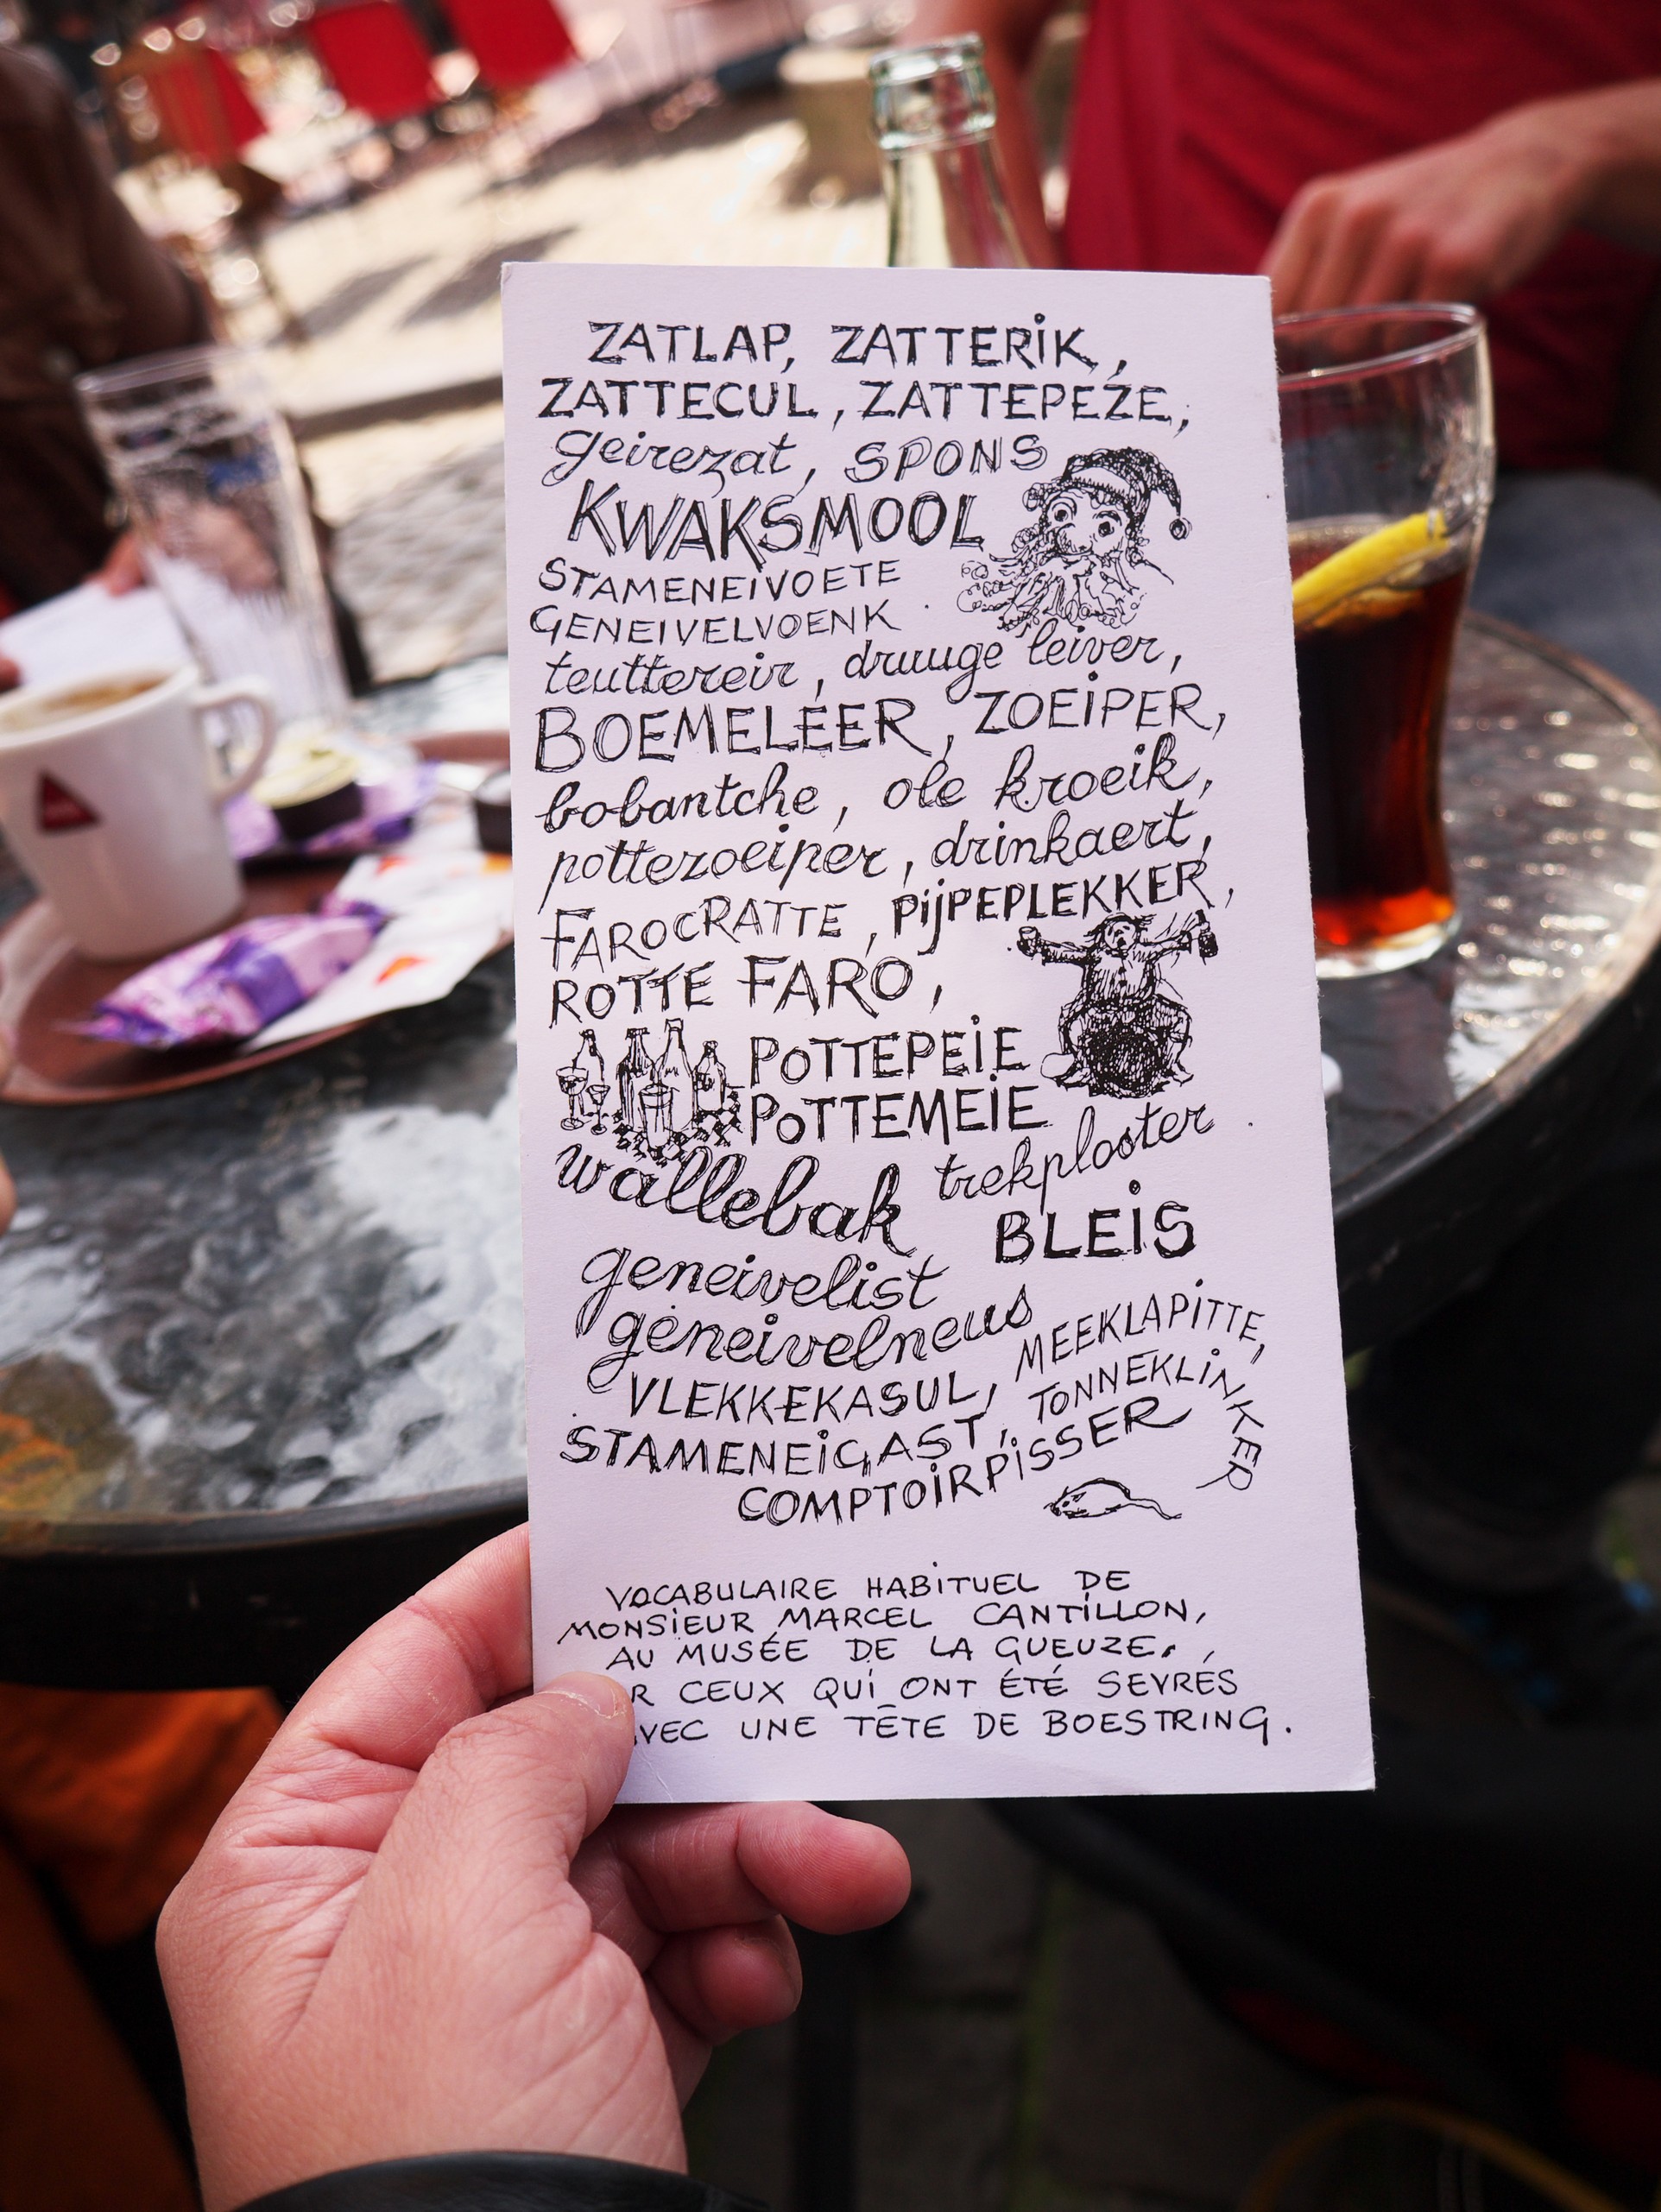 ZATLAP, ZATTERIK,
ZATTECUL, ZATTEPEZE,
geirezat, SPONS
KWAKSMOOL
STAMENEIVOETE
GENEIVELVOENK
teuttereir, druuge leiver,
BOEMELEER, ZOEIPER,
bobantche, ole kroeik,
pottezoeiper, drinkaert,
FAROCRATTE, PIJPEPLEKKER,
ROTTE FARO,
POTTEPEIE
POTTEMEIE
wallebak trekplooter
BLEIS
geneivelist
geneivelneus
VLEKKEKASUL, MEEKLAPITTE,
STAMENEIGAST, TONNEKLINKER
COMPTOIRPISSER
VOCABULAIRE HABITUEL DE
MONSIEUR MARCEL CANTILLON,
AU MUSÉE DE LA GUEUZE.
R CEUX QUI ONT ÉTÉ SEVRÉS
VEC UNE TÊTE DE BOESTRING.